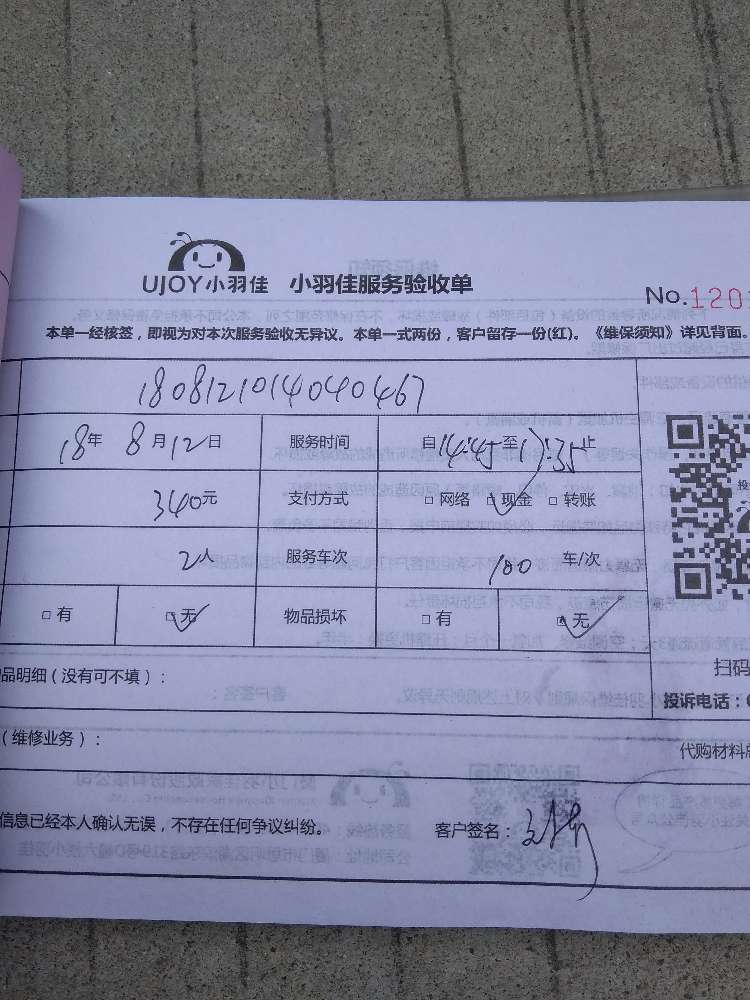 UJOY小羽佳 小羽佳服务验收单
No.120
本单一经核签，即视为对本次服务验收无异议。本单一式两份，客户留存一份(红)。《维保须知》详见背面。
1808121014040467
18年 8月12日 服务时间 自14:45至17:35止
340元 支付方式 □网络 □现金 □转账
2人 服务车次 100 车/次
□有 □无 物品损坏 □有 □无
品明细（没有可不填）：
扫码
投诉电话：
（维修业务）：
代购材料
信息已经本人确认无误，不存在任何争议纠纷。 客户签名：